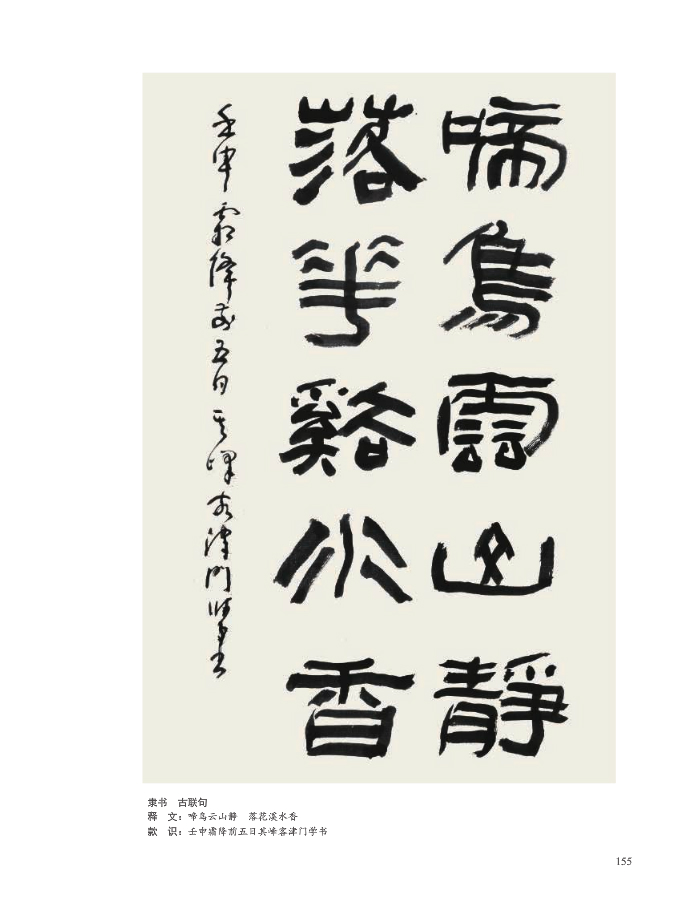 啼鳥雲山靜
落華谿水香
壬申霜降前五日其峰客津门学书
隶书　古联句
释　文：啼鸟云山静　落花溪水香
款　识：壬申霜降前五日其峰客津门学书
155